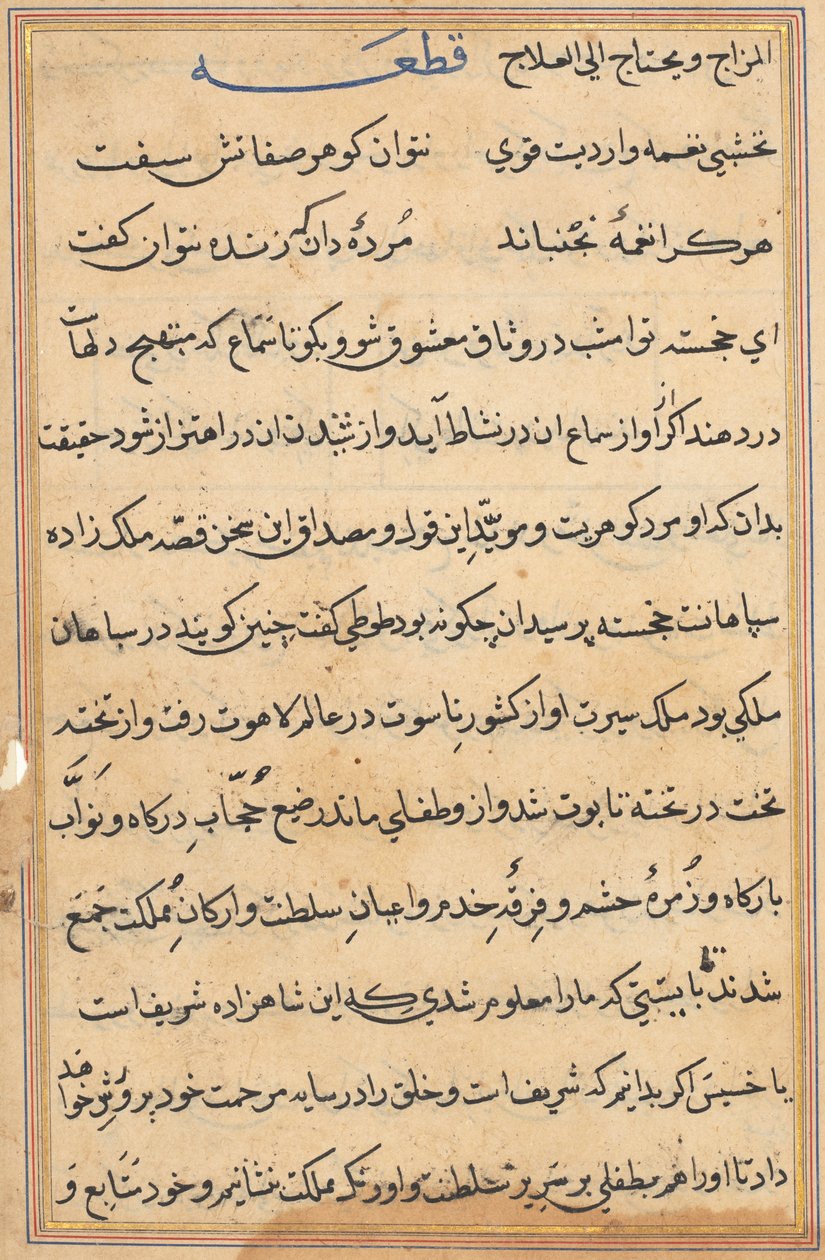 المزاج و يحتاج الي العلاج قطعه
نخشبي نغمه وارديت قوي نتوان كوهر صفاتش سفت
هر كرا نغمهٔ نجُنباند مُردهٔ دان كه زنده نتوان كفت
اي خجسته توامشب در وثاق معشوق شو و بكو تا سَمَاع كه مبتهج دلهاست
در دهند اكر از آواز سماع ان در نشاط آيد و از شنيدن ان در اهتزاز شود حقيقت
بدان كه او مرد كوهريست و مويّدِ اين قول و مصداق اين سخن قصّه ملك زاده
سپاهانست خجسته پرسيد ان چكونه بود طوطي كفت چنين كويند در سپاهان
ملكي بود ملك سيرت او از كشورِ ناسوت در عالم لاهوت رفت و از تخته
تخت در تختهٔ تابوت شد و ازو طفلي ماند رضيع حُجّابِ دركاه و نَوّاَب
باركاه و زُمرهٔ حشم و فِرقهٔ خدم و اعيانِ سلطنت و اركانِ مُملكت جَمع
شدند تا بايستي كه ما را معلوم شدي كِه اين شاهزاده شريف است
يا خسيسَ اكر بدانيم كه شريف است و خلق را در سايه مرحمت خود پروَرِش خواهد
داد تا او را هم بطفلي بر سَرِيرِ سلطنت و اورنك مملكت بنشانيم و خود مَتَابع وَ